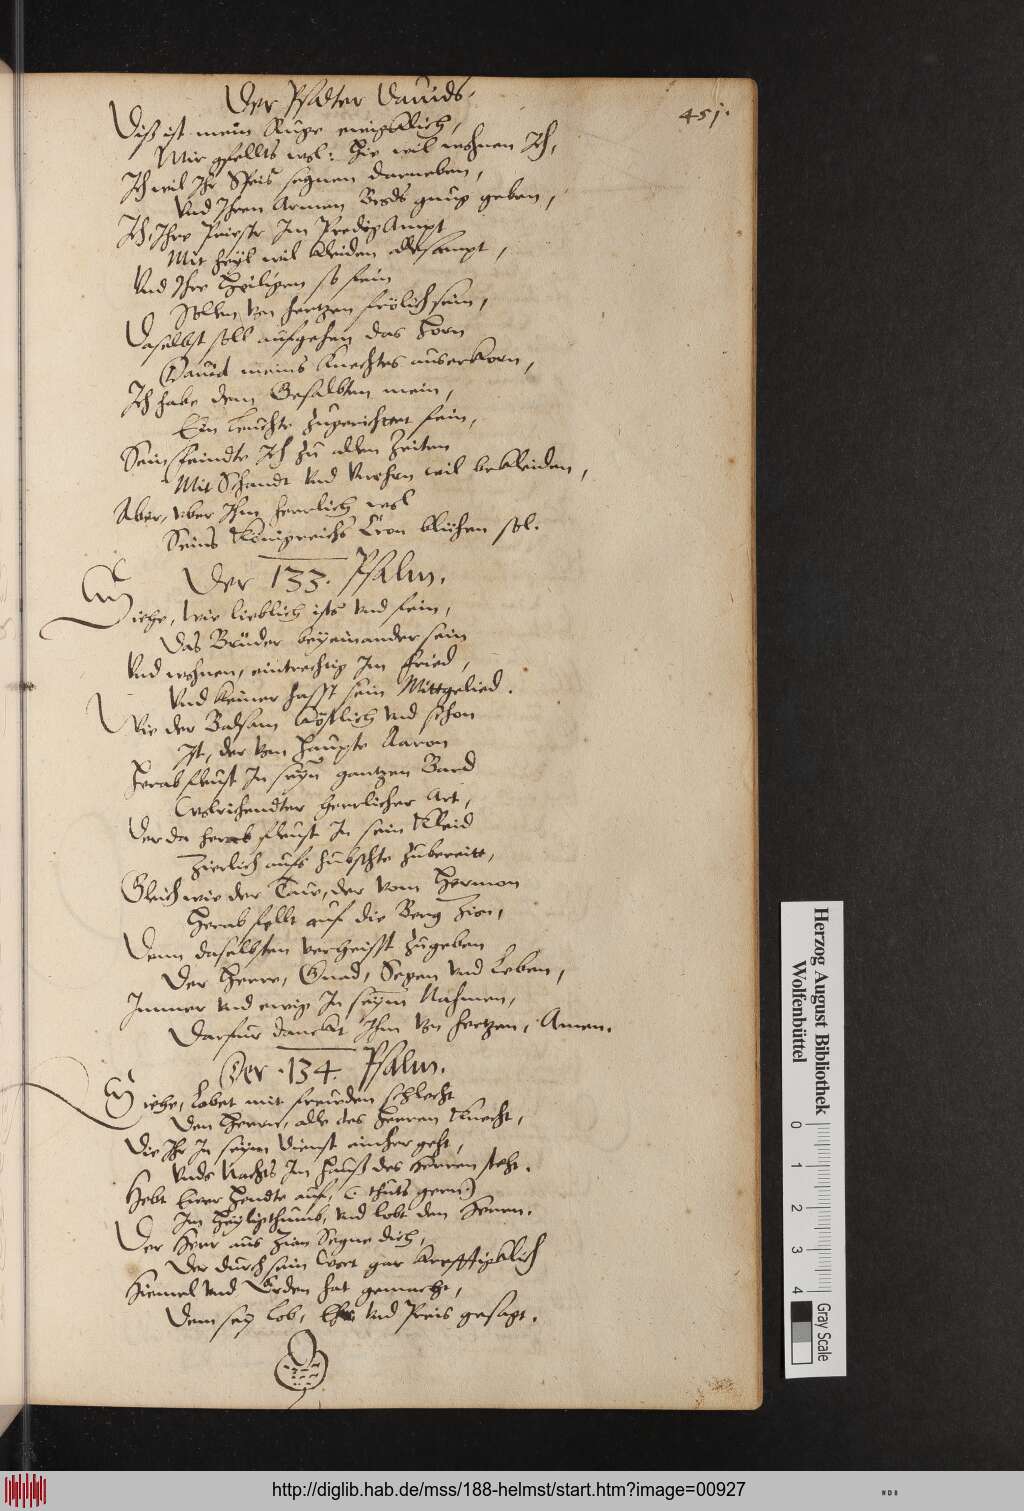 Der Psalter Dauids.
451.
Diß ist mein Ruge ewigklich,
Mir gfellts wol: Hie wil wohnen Ich,
Ich wil Ihr Speis segnen darneben,
Vnd Ihren Armen Brods gnug geben,
Ich, Ihre Priestr Im Predig Ampt
Mit heyl wil kleiden allesampt,
Vnd Ihre Heiligen so fein
Sollen von hertzen frölich sein,
Daselbst soll aufgehen das Horn
Dauid meins Knechtes auserkorn,
Ich habe dem Gesalbten mein,
Ein leuchte zugerichtet fein,
Sein feindte Ich zu allen Zeiten
Mit Schandt Vnd Vnehrn wil bekleiden,
Aber, vber Ihm herrlich wol
Seins Königreichs Cron blühen sol.
Der 133. Psalm.
Siehe, wie lieblich ists Vnd fein,
Das Brüder beyeinander sein
Vnd wohnen, eintrechtig Im fried,
Vnd keiner hasst sein Mittgelied.
Wie der Balsam köstlich Vnd schon
Ist, der Von Haupte Aaron
Herab fleust In seyn gantzen Bard
Wolriechendter herrlicher Art,
Der da herab fleust In sein Kleid
Zierlich aufs hübschte zubereitt,
Gleich wie der Taue, der Vom Hermon
Herab fellt auf die Berg Zion,
Denn daselbsten verheisst zugeben
Der Herre, Gnad, Segen Vnd Leben,
Immer Vnd ewig In seym Nahmen,
Darfuer danckt Ihm Von hertzen, Amen.
Der 134. Psalm.
Siehe, Lobet mit freuden schlecht
Den Herrn, alle des Herren Knecht,
Die Ihr In seym Dienst einher geht,
Vnds Nachts Im Hauß des Herren steht.
Hebt Ewer Hendte auf, (: thuts gern:)
Im Heyligthumb, Vnd lobt den Herren.
Der Herr aus Zion Segne dich,
Der durch sein Wort gar krefftigklich
Himel Vnd Erden hat gemacht,
Dem sey Lob, Ehr Vnd Preis gesagt.
Herzog August Bibliothek
Wolfenbüttel
0 1 2 3 4
Gray Scale
http://diglib.hab.de/mss/188-helmst/start.htm?image=00927